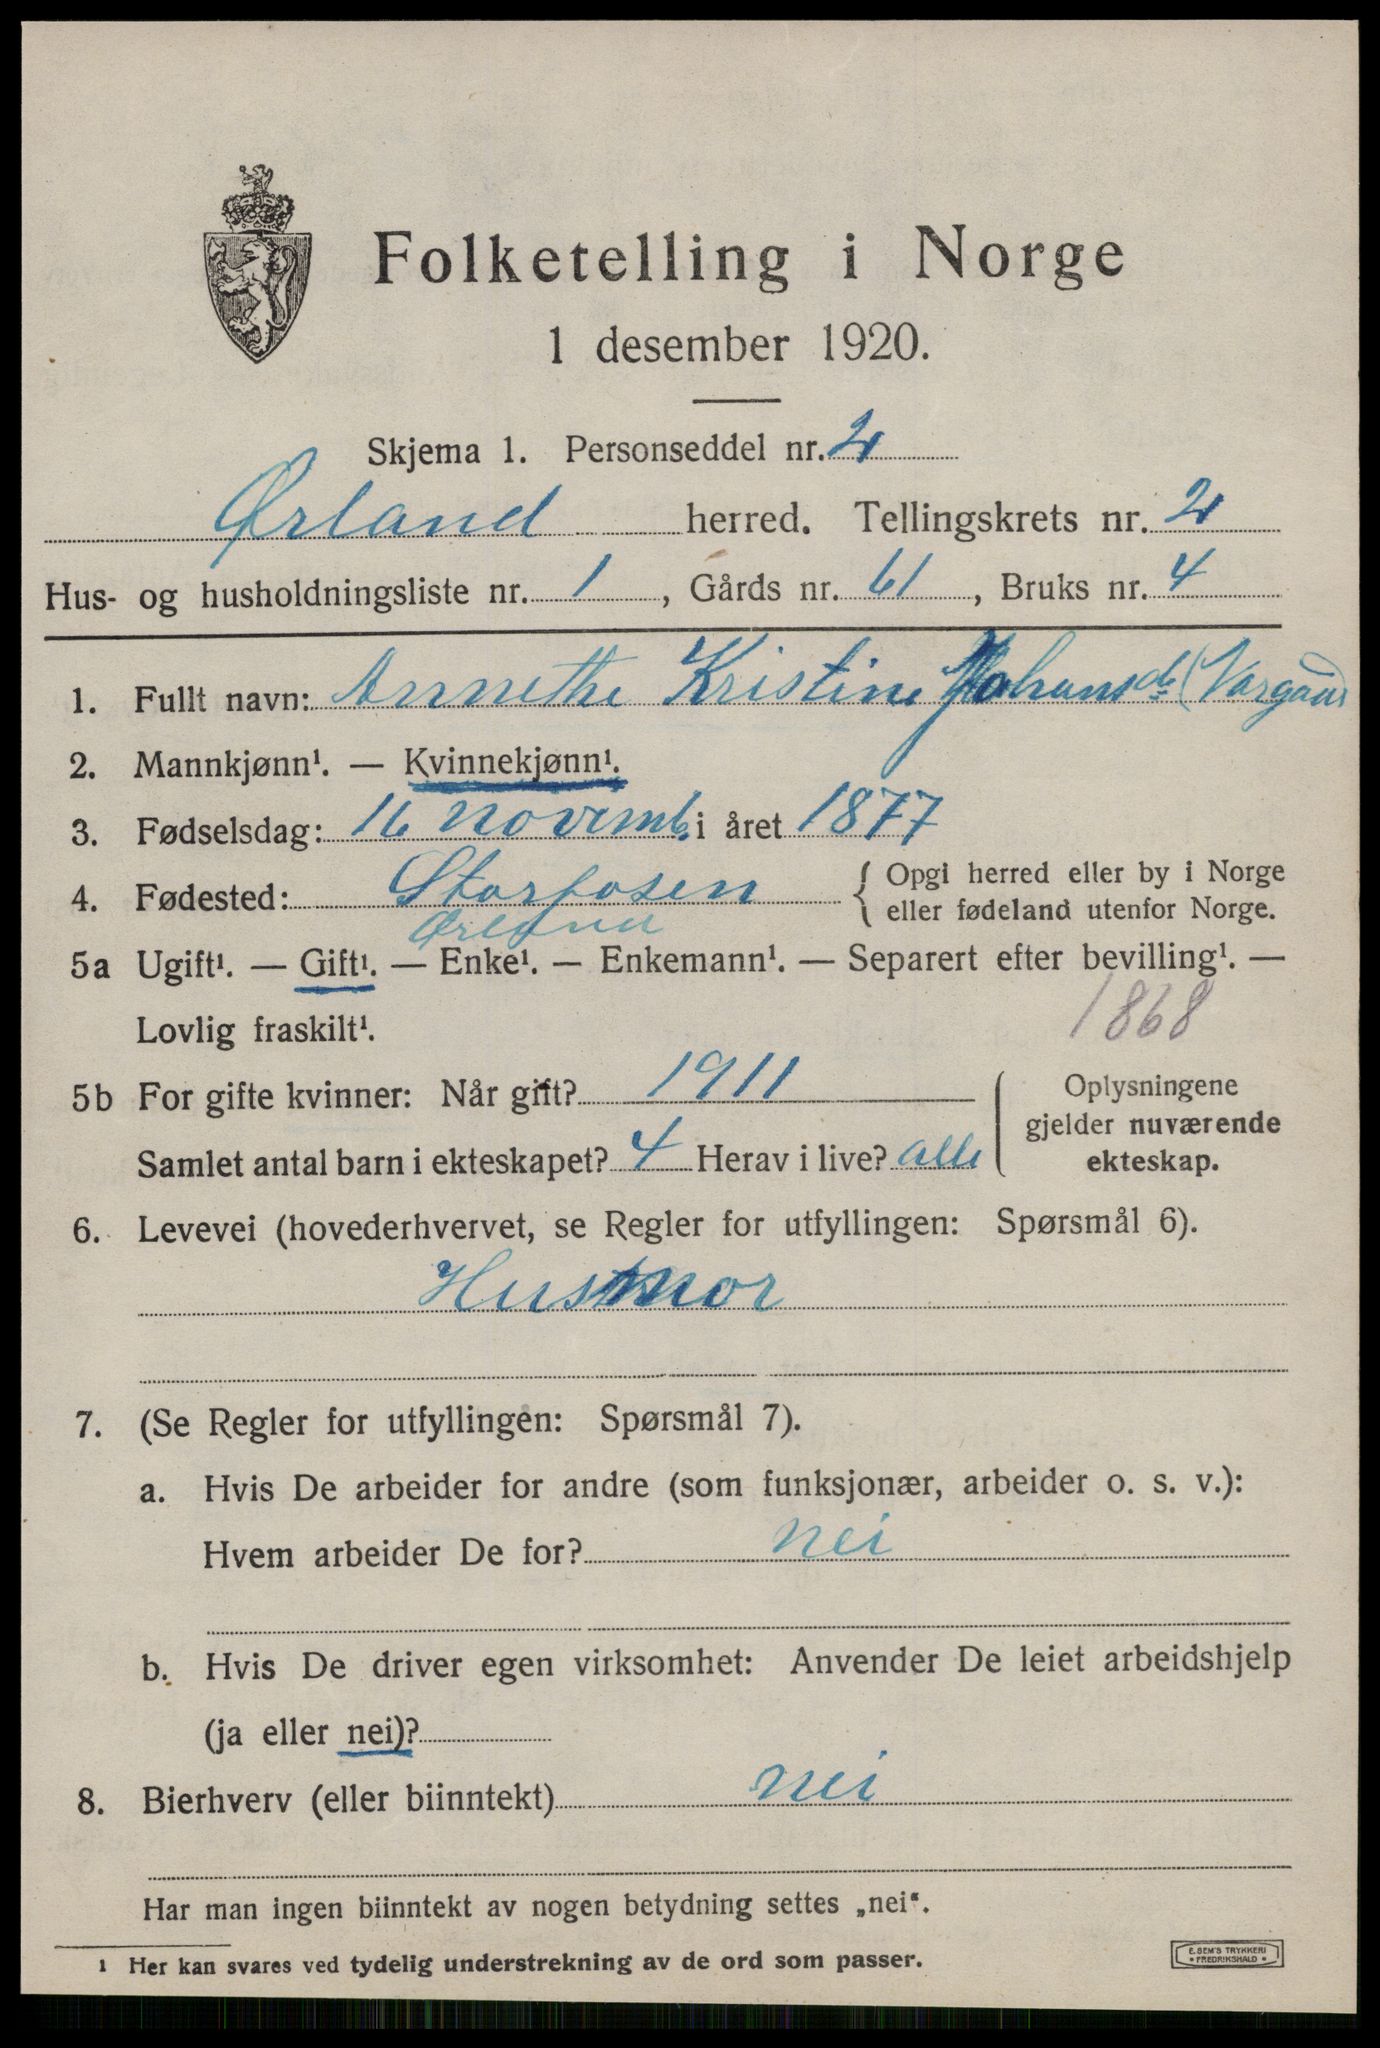 Folketelling i Norge
1 desember 1920.
Skjema 1. Personseddel nr. 2
Ørland herred. Tellingskrets nr. 2
Hus- og husholdningsliste nr. 1, Gårds nr. 61, Bruks nr. 4
1. Fullt navn: Annethe Kristine Johansdr (Vargaard
2. Mannkjønn¹. — Kvinnekjønn¹.
3. Fødselsdag: 16 novemb. i året 1877
4. Fødested: Storfosen { Opgi herred eller by i Norge
eller fødeland utenfor Norge.
Ørland
5a Ugift¹. — Gift¹. — Enke¹. — Enkemann¹. — Separert efter bevilling¹. —
Lovlig fraskilt¹. 1868
5b For gifte kvinner: Når gift? 1911
Samlet antal barn i ekteskapet? 4 Herav i live? alle
Oplysningene
gjelder nuværende
ekteskap.
6. Levevei (hovederhvervet, se Regler for utfyllingen: Spørsmål 6).
Husmor
7. (Se Regler for utfyllingen: Spørsmål 7).
a. Hvis De arbeider for andre (som funksjonær, arbeider o. s. v.):
Hvem arbeider De for? nei
b. Hvis De driver egen virksomhet: Anvender De leiet arbeidshjelp
(ja eller nei)?
8. Bierhverv (eller biinntekt) nei
Har man ingen biinntekt av nogen betydning settes „nei“.
¹ Her kan svares ved tydelig understrekning av de ord som passer.
E. SEM'S TRYKKERI
• FREDRIKSHALD •